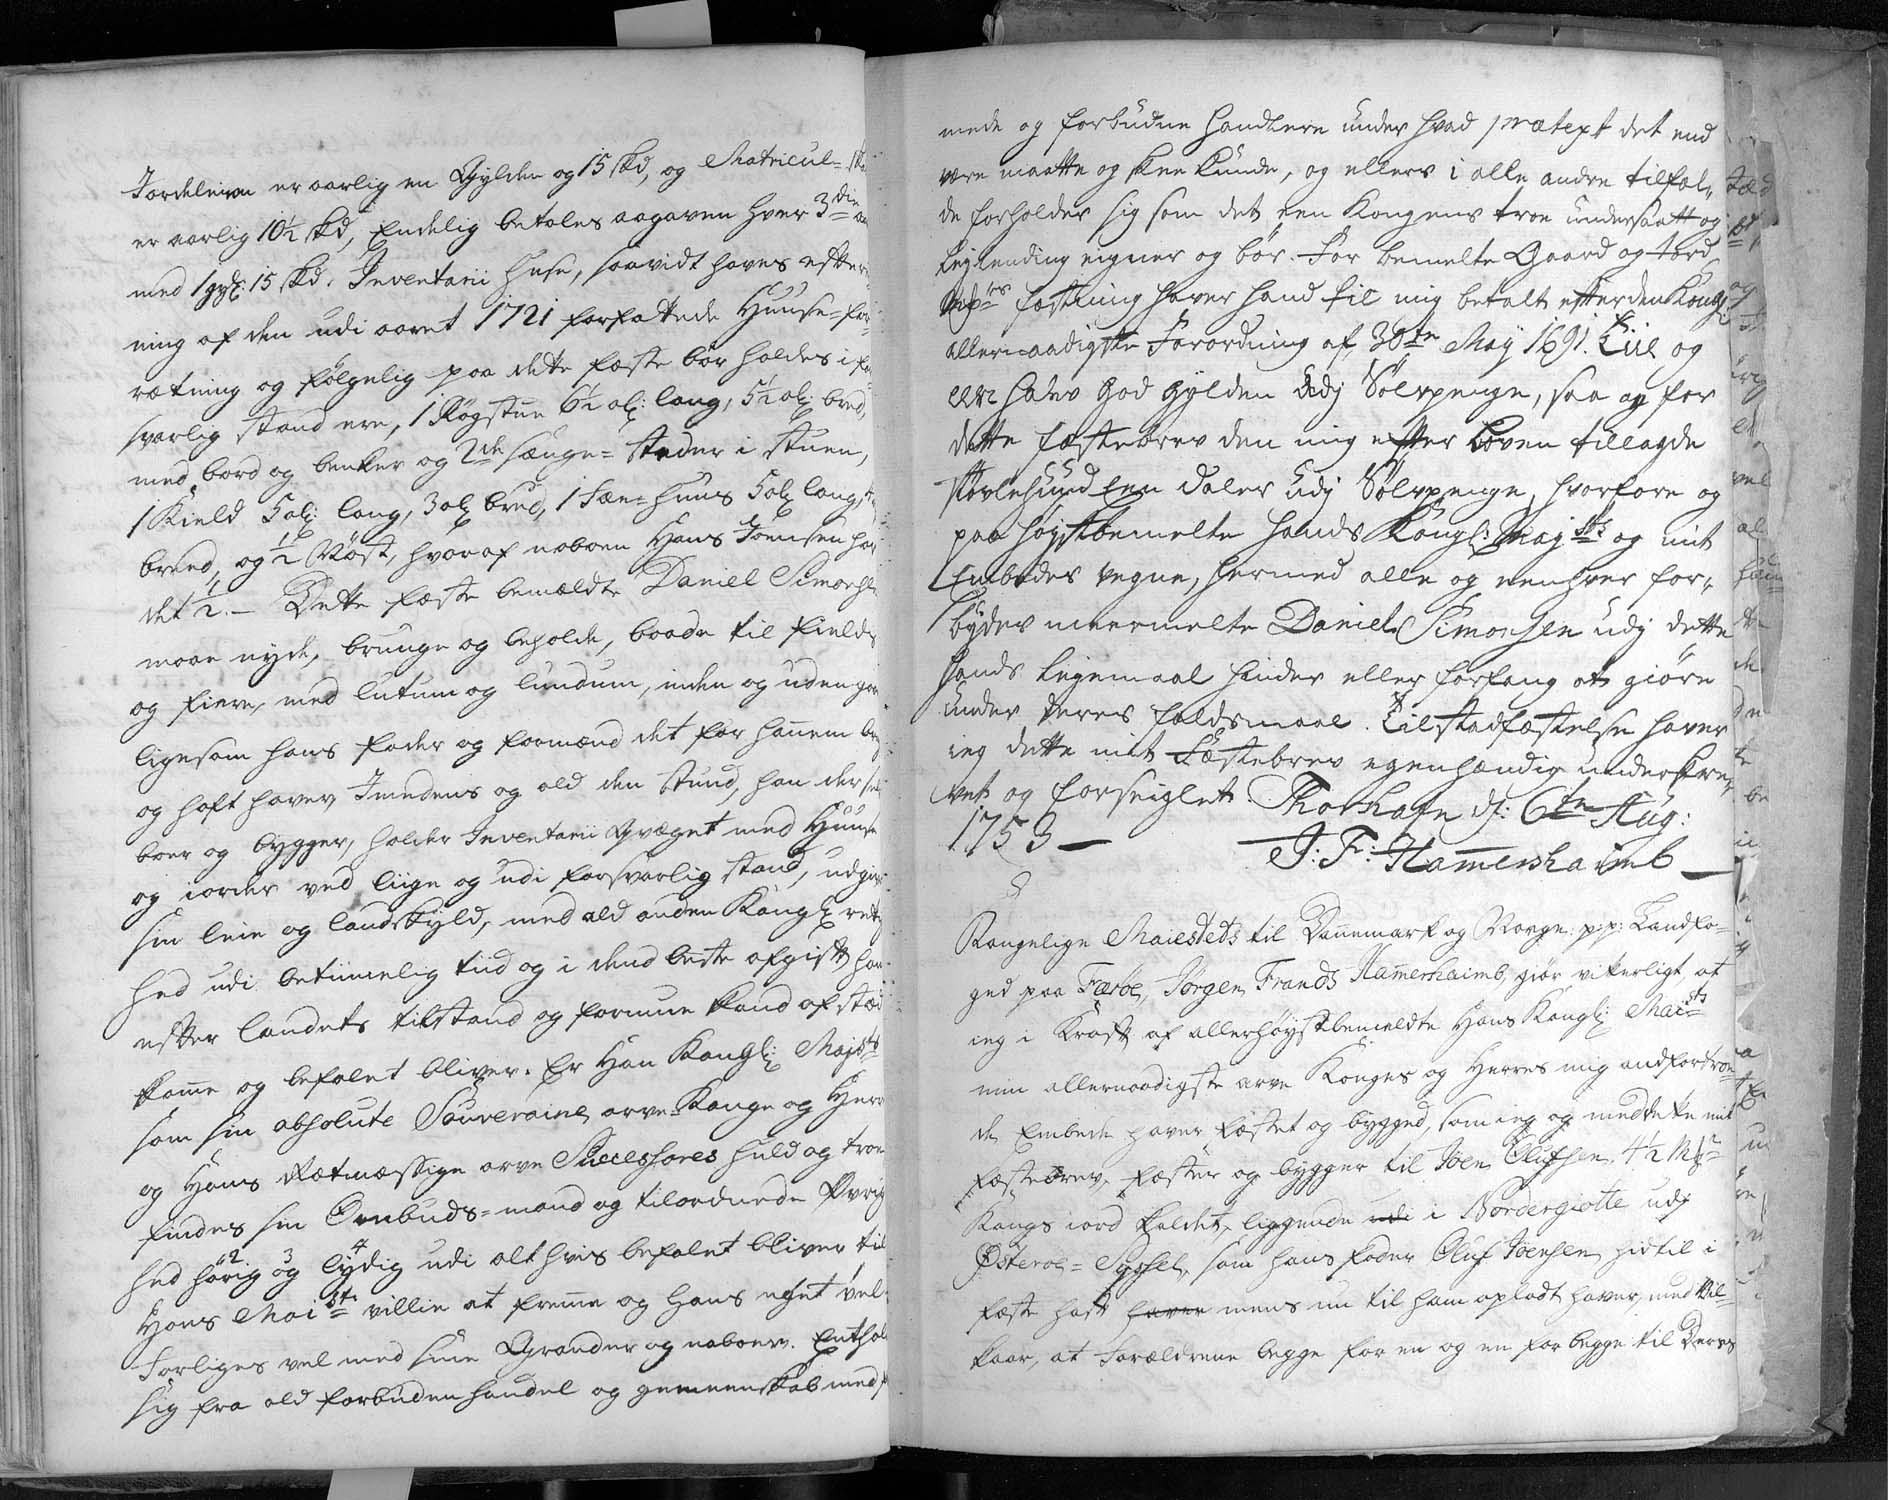 Jordeleien er aarlig en Gylden og 15 skd, og Matricul=
er aarlig 10½ skd, Endelig betales aagaven hver 3die
med 1 gyl: 15 skd. Inventarii huse, saavidt haves efter
ning af den udi aaret 1721 forfattede Huuse=for
rætning og følgelig paa dette fæste bør holdes i for
svarlig stand ere, 1 Røgstue 6½ al: lang, 5½ al: bred,
med bord og benker og 2de senge=stæder i stuen,
1 Kield 5 al: lang, 3 al: bred, 1 Fæe=huus 5 al: lang,
breed, og ½ Nøst, hvoraf naboen Hans Joensen har
det ½. — Dette fæste bemældte Daniel Simonsen
maae nyde, bruuge og beholde, baade til fields
og fiere, med lutum og lundum, inden og uden gar
ligesom hans fader og formænd det før hanem brug
og haft haver Imedens og ald den stund, han der sel
boer og bygger, holder Inventarii Qvæget med Huuse
og iorder ved liige og udi forsvarlig stand, udgiver
sin leie og landskyld, med ald anden Kongl: rettig
hed udi betiimelig tiid og i dend beste afgift han
efter landets tilstand og formue kand afsted
kome og befalet bliver. Er Han Kongl: Majsts
som sin absolute Souveraine arve=Konge og Herre
og Hans Retmæssige arve Successores huld og troe
findes sin Ombuds=mand og tilordnede Øvrig
hed hørig og lydig udi alt hvis befalet bliver til
Hans Maists villie at freme og Hans eget vel
Forliges vel med sine Grander og naboer. Enthol
sig fra ald forbuden handel og gemeenskab med
mede og forbudne handlere under hvad prætext det end
være maatte og skee kunde, og ellers i alle andre tilfæl=
de forholder sig som det een Kongens troe undersaatt og
Leylending eigner og bør. For bemelte Gaard og Jord
fæstning haver hand til mig betalt efter den Kongl:
allernaadigste Forordning af 30te Maij 1691. Tiil og
een halv God Gylden Udj Sølvpenge, saa og for
dette fæstebrev den mig efter Loven tillagde
støvlehuud Een daler Udj Sølvpenge, hvorfore og
paa høystbemelte hands Kongl: Maj:sts og mit
Embedes vegne, hermed alle og eenhver for=
bydes meermelte Daniel Simonsen udj dette
hands Leyemaal hinder eller forfang at giøre
under deres faldsmaal. Til stadfæstelse haver
ieg dette mit Fæstebrev egenhændig underskre=
vet og forseiglet. Thorhafn d: 6te Aug:
1753 —
J: Fr: Hamershaimb —
Kongelige Maiestets til Danemark og Norge p:p: Landfo=
ged paa Færøe, Jørgen Frands Hamershaimb, giør vitterligt, at
ieg i Kraft af allerhøystbemeldte Hans Kongl: Maists
min allernaadigste arve Konges og Herres mig andfortroe=
de Embede haver fæstet og bygged, som ieg og med dette mit
fæstebrev, fæster og bygger til Joen Olufsen 4½ Mk:
Kongs iord kaldet, liggende udi i Nordergiotte udj
Østerøe=Syssel, som hans fader Oluf Joensen hidtil i
fæste haft haver mens nu til ham opladt haver, med Vil=
kaar, at Forældrene begge for en og en for begge til Deres